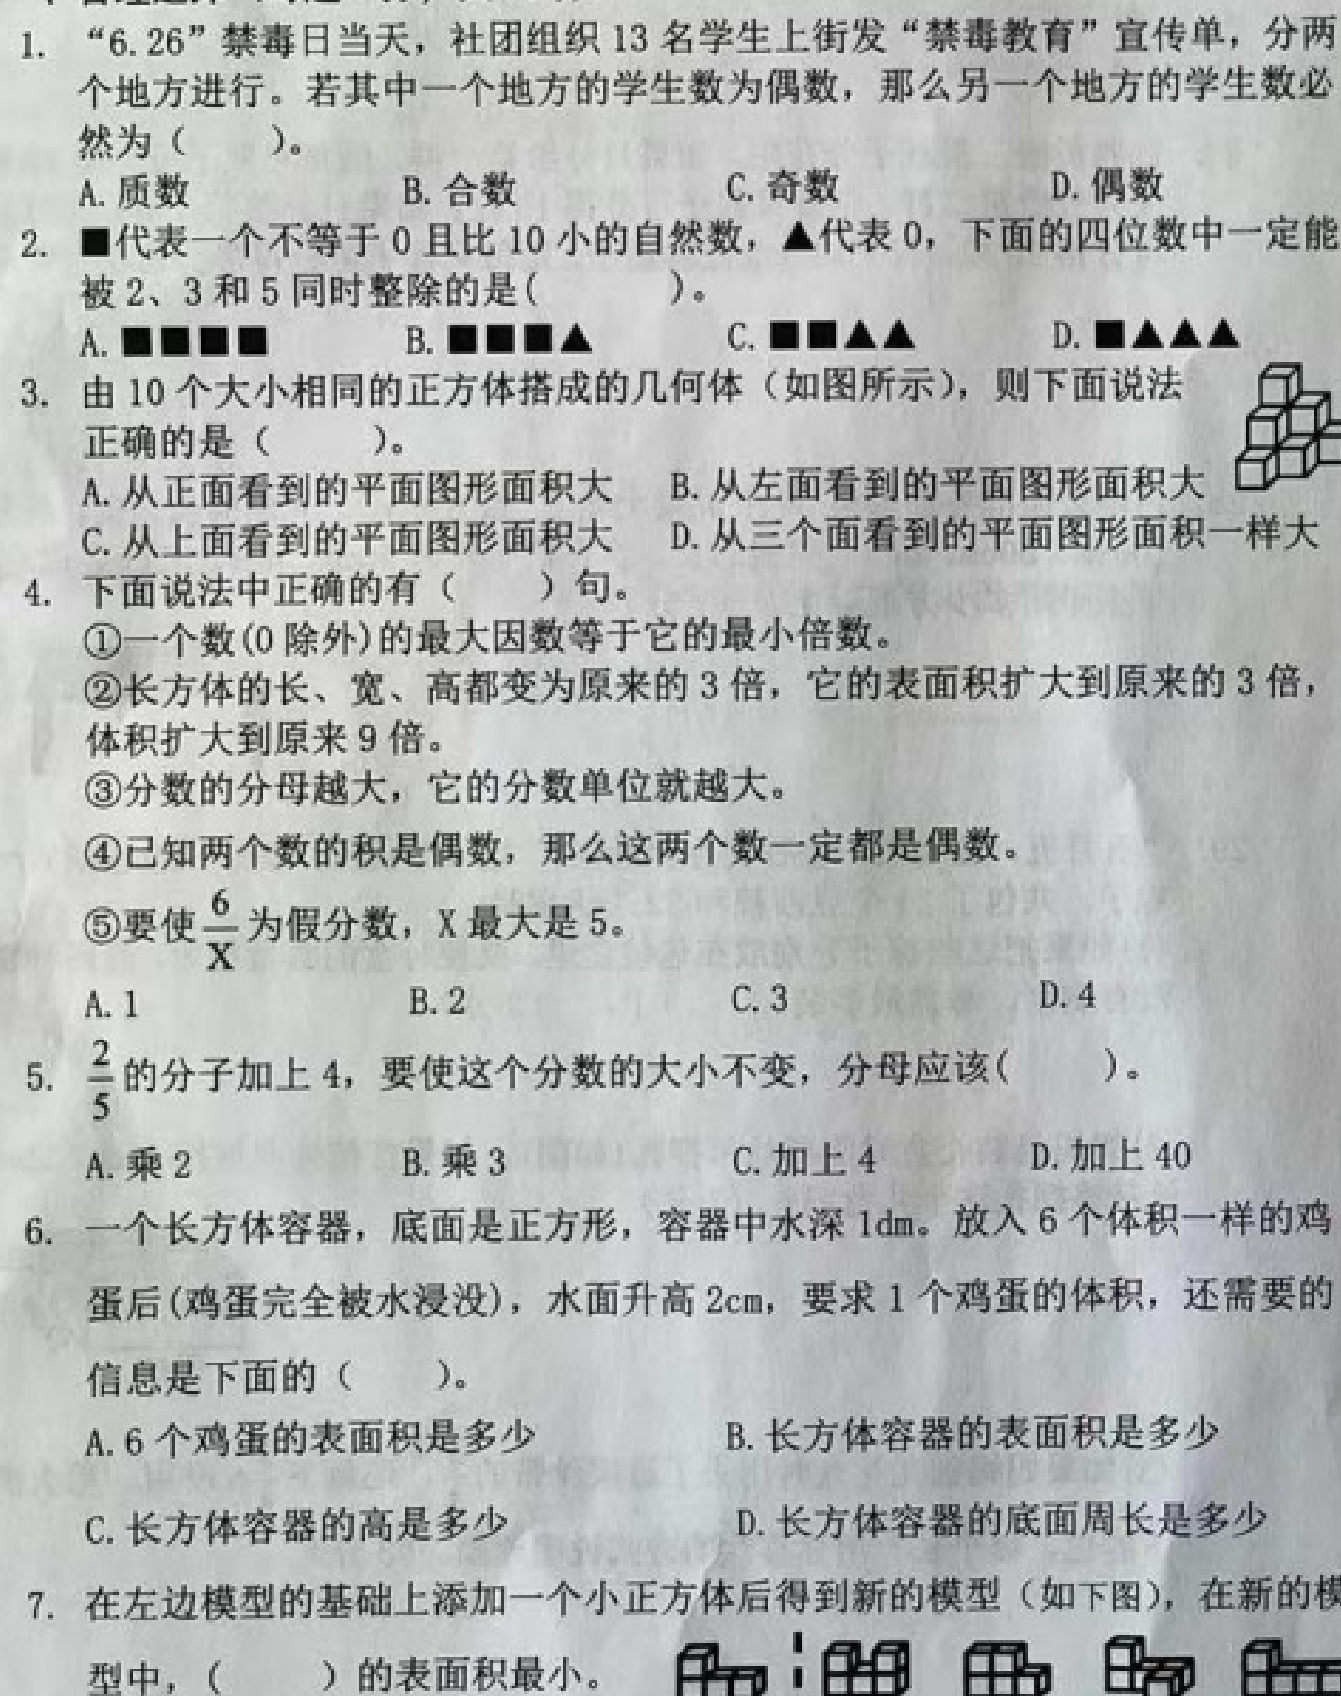 1. “6.26”禁毒日当天，社团组织 13 名学生上街发“禁毒教育”宣传单，分两
个地方进行。若其中一个地方的学生数为偶数，那么另一个地方的学生数必
然为（　　）。
A. 质数　B. 合数　C. 奇数　D. 偶数
2. ■代表一个不等于 0 且比 10 小的自然数，▲代表 0，下面的四位数中一定能
被 2、3 和 5 同时整除的是(　　)。
A. ■■■■　B. ■■■▲　C. ■■▲▲　D. ■▲▲▲
3. 由 10 个大小相同的正方体搭成的几何体（如图所示），则下面说法
正确的是（　　）。
A. 从正面看到的平面图形面积大　B. 从左面看到的平面图形面积大
C. 从上面看到的平面图形面积大　D. 从三个面看到的平面图形面积一样大
4. 下面说法中正确的有（　　）句。
①一个数(0 除外)的最大因数等于它的最小倍数。
②长方体的长、宽、高都变为原来的 3 倍，它的表面积扩大到原来的 3 倍，
体积扩大到原来 9 倍。
③分数的分母越大，它的分数单位就越大。
④已知两个数的积是偶数，那么这两个数一定都是偶数。
⑤要使 6/X 为假分数，X 最大是 5。
A. 1　B. 2　C. 3　D. 4
5. 2/5 的分子加上 4，要使这个分数的大小不变，分母应该(　　)。
A. 乘 2　B. 乘 3　C. 加上 4　D. 加上 40
6. 一个长方体容器，底面是正方形，容器中水深 1dm。放入 6 个体积一样的鸡
蛋后(鸡蛋完全被水浸没)，水面升高 2cm，要求 1 个鸡蛋的体积，还需要的
信息是下面的（　　）。
A. 6 个鸡蛋的表面积是多少　B. 长方体容器的表面积是多少
C. 长方体容器的高是多少　D. 长方体容器的底面周长是多少
7. 在左边模型的基础上添加一个小正方体后得到新的模型（如下图），在新的模
型中，（　　）的表面积最小。